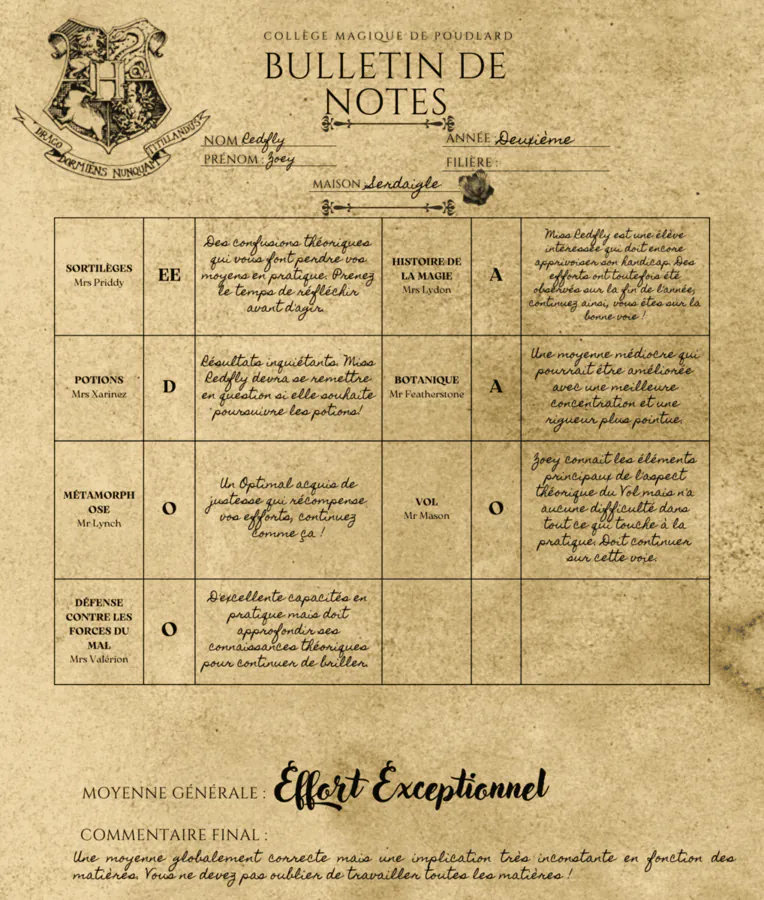 COLLÈGE MAGIQUE DE POUDLARD
BULLETIN DE
NOTES
DRACO
DORMIENS NUNQUAM
TITILLANDUS
NOM Redfly
ANNÉE Deuxième
PRÉNOM : Zoey
FILIÈRE :
MAISON Serdaigle
SORTILÈGES
Mrs Priddy
EE
Des confusions théoriques
qui vous font perdre vos
moyens en pratique. Prenez
le temps de réfléchir
avant d'agir.
HISTOIRE DE
LA MAGIE
Mrs Lydon
A
Miss Redfly est une élève
interessée qui doit encore
apprivoiser son handicap. Des
efforts ont toutefois été
observés sur la fin de l'année,
continuez ainsi, vous êtes sur la
bonne voie !
POTIONS
Mrs Xarinez
D
Résultats inquiétants. Miss
Redfly devra se remettre
en question si elle souhaite
poursuivre les potions!
BOTANIQUE
Mr Featherstone
A
Une moyenne médiocre qui
pourrait être améliorée
avec une meilleure
concentration et une
rigueur plus pointue.
MÉTAMORPH
OSE
Mr Lynch
O
Un Optimal acquis de
justesse qui récompense
vos efforts, continuez
comme ça !
VOL
Mr Mason
O
Zoey connait les éléments
principaux de l'aspect
théorique du Vol mais n'a
aucune difficulté dans
tout ce qui touche à la
pratique. Doit continuer
sur cette voie.
DÉFENSE
CONTRE LES
FORCES DU
MAL
Mrs Valérion
O
D'excellente capacités en
pratique mais doit
approfondir ses
connaissances théoriques
pour continuer de briller.
MOYENNE GÉNÉRALE : Effort Exceptionnel
COMMENTAIRE FINAL :
Une moyenne globalement correcte mais une implication très inconstante en fonction des
matières. Vous ne devez pas oublier de travailler toutes les matières !